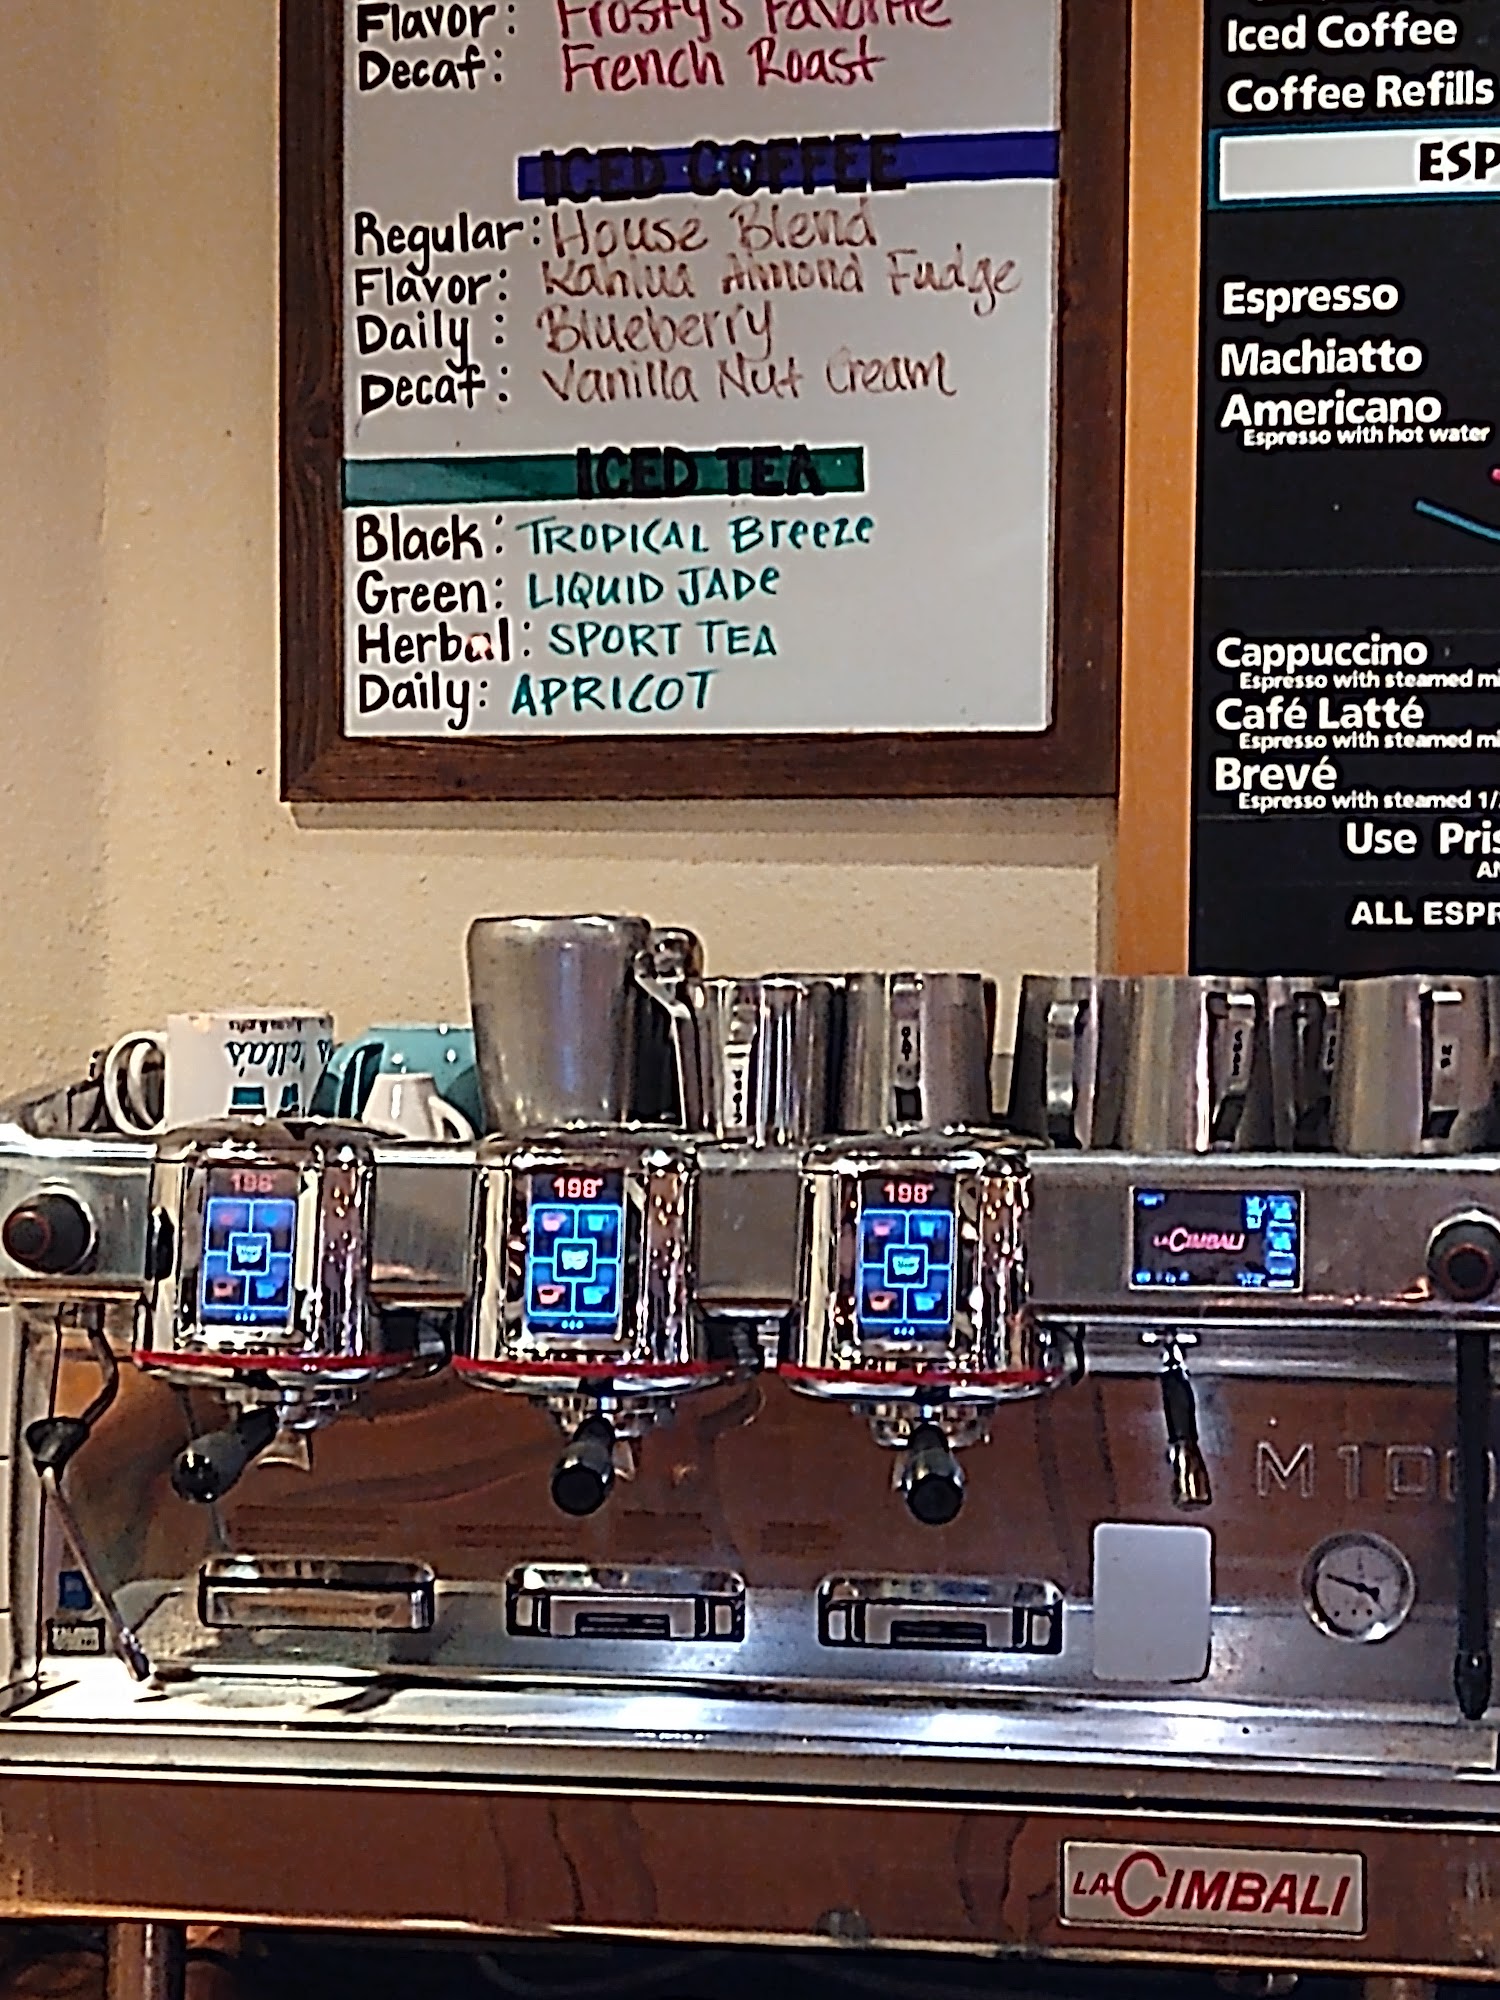 Flavor: Frosty's Favorite
Decaf: French Roast
ICED COFFEE
Regular: House Blend
Flavor: Kahlua Almond Fudge
Daily: Blueberry
Decaf: Vanilla Nut Cream
ICED TEA
Black: TROPICAL Breeze
Green: LIQUID JADe
Herbal: SPORT TEA
Daily: APRICOT
Iced Coffee
Coffee Refills
ESP
Espresso
Machiatto
Americano
Espresso with hot water
Cappuccino
Espresso with steamed mi
Café Latté
Espresso with steamed mi
Brevé
Espresso with steamed 1/
Use Pris
AN
ALL ESPR
198°
198°
198°
LACIMBALI
M100
LACIMBALI